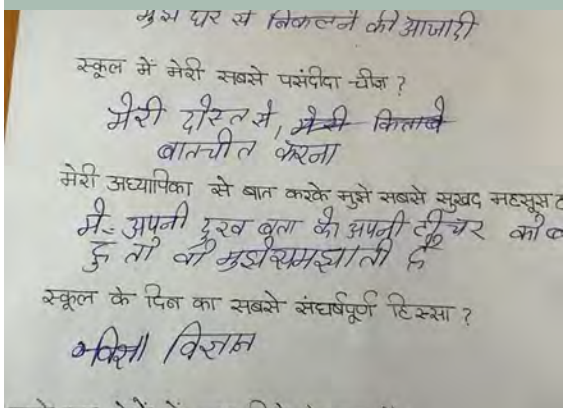 मुझे घर से निकलने की आजादी
स्कूल में मेरी सबसे पसंदीदा चीज़ ?
मेरी दोस्त से, मेरी किताबे
बातचीत करना
मेरी अध्यापिका से बात करके मुझे सबसे सुखद महसूस
मै अपनी दुख बता के अपनी टीचर को
हु तो वो मुझे समझाती है
स्कूल के दिन का सबसे संघर्षपूर्ण हिस्सा ?
विज्ञान